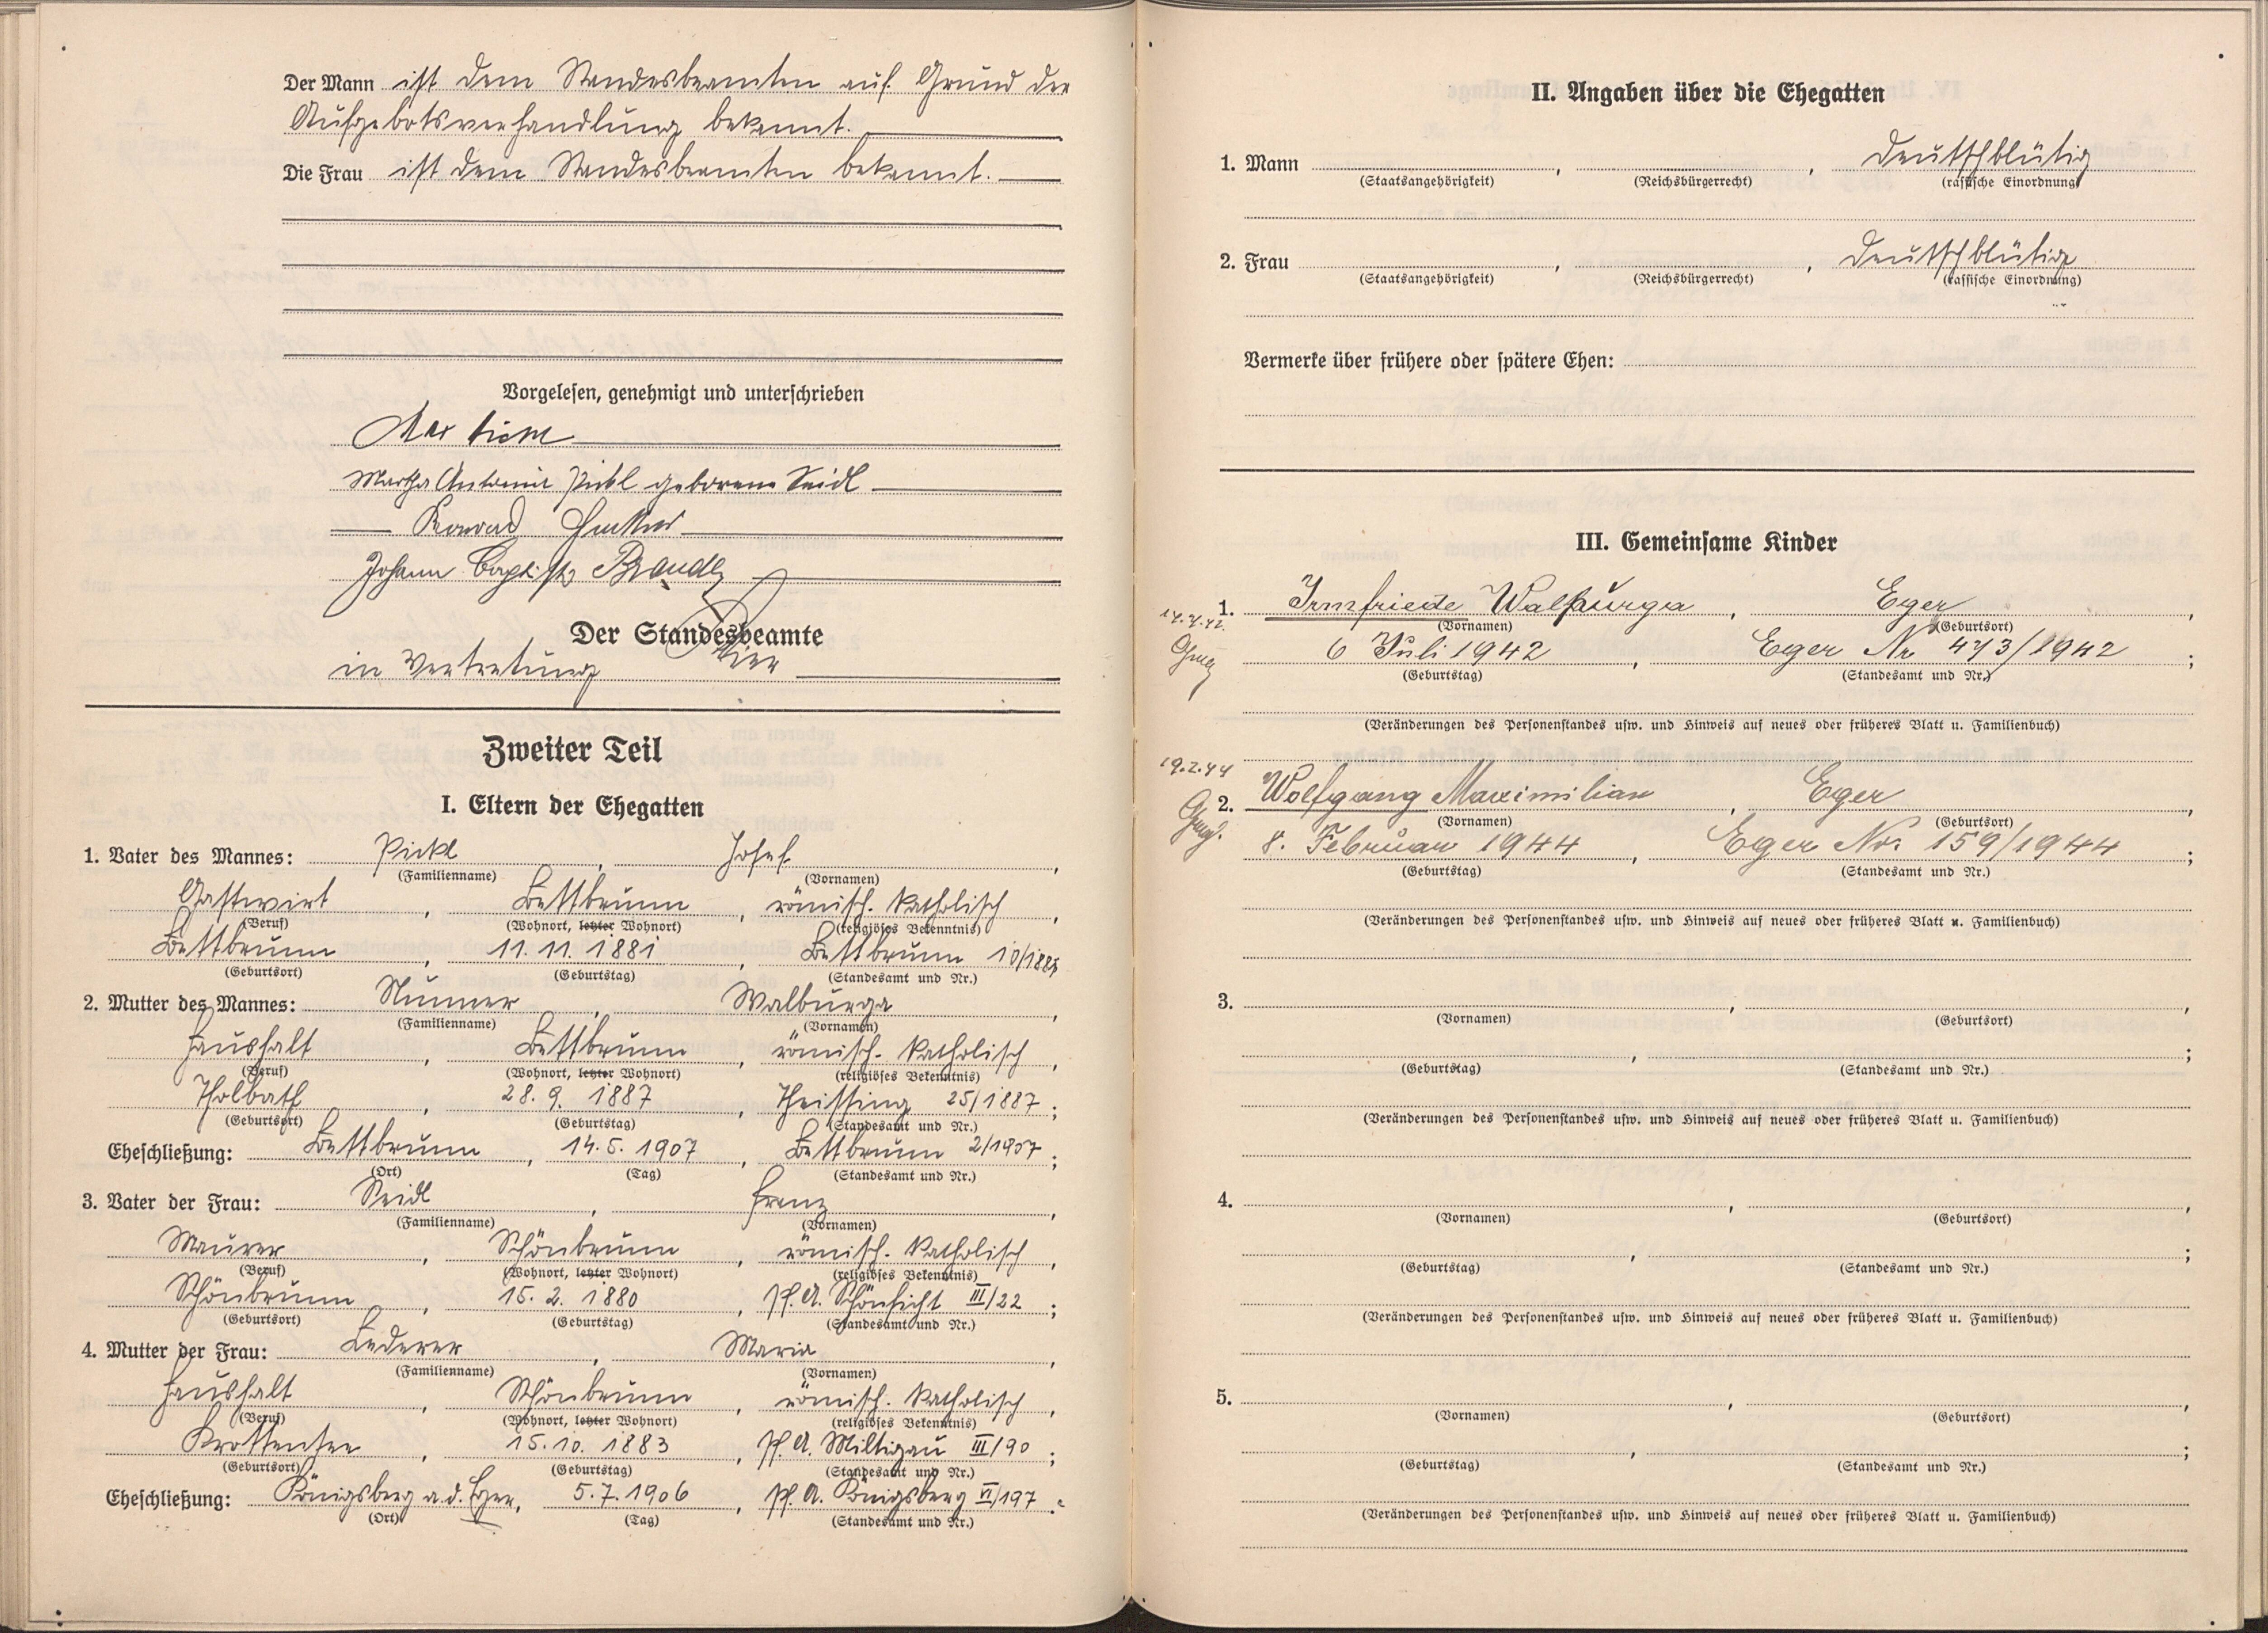 Der Mann ist dem Standesbeamten auf Grund der
Aufgebotsverhandlung bekannt.
Die Frau ist dem Standesbeamten bekannt.
Vorgelesen, genehmigt und unterschrieben
Max
Martha Antonia Pickl geborene Seidl
Konrad
Johann Baptist Brandl
Der Standesbeamte
in Vertretung
Zweiter Teil
I. Eltern der Ehegatten
1. Vater des Mannes: Pickl, Josef,
(Familienname) (Vornamen)
Gastwirt, Bettbrunn, römisch-katholisch,
(Beruf) (Wohnort, letzter Wohnort) (religiöses Bekenntnis)
Bettbrunn, 11. 11. 1881, Bettbrunn 10/1881
(Geburtsort) (Geburtstag) (Standesamt und Nr.)
2. Mutter des Mannes: Nunner, Walburga,
(Familienname) (Vornamen)
Haushalt, Bettbrunn, römisch-katholisch,
(Beruf) (Wohnort, letzter Wohnort) (religiöses Bekenntnis)
Tholbath, 28. 9. 1887, Theissing 25/1887;
(Geburtsort) (Geburtstag) (Standesamt und Nr.)
Eheschließung: Bettbrunn, 14. 5. 1907, Bettbrunn 2/1907;
(Ort) (Tag) (Standesamt und Nr.)
3. Vater der Frau: Seidl, Franz,
(Familienname) (Vornamen)
Maurer, Schönbrunn, römisch-katholisch,
(Beruf) (Wohnort, letzter Wohnort) (religiöses Bekenntnis)
Schönbrunn, 15. 2. 1880, Pf. A. Schönficht III/22;
(Geburtsort) (Geburtstag) (Standesamt und Nr.)
4. Mutter der Frau: Lederer, Maria,
(Familienname) (Vornamen)
Haushalt, Schönbrunn, römisch-katholisch,
(Beruf) (Wohnort, letzter Wohnort) (religiöses Bekenntnis)
Krottensee, 15. 10. 1883, Pf. A. Miltigau III/90;
(Geburtsort) (Geburtstag) (Standesamt und Nr.)
Eheschließung: Königsberg a. d. Eger, 5. 7. 1906, Pf. A. Königsberg VI/197.
(Ort) (Tag) (Standesamt und Nr.)
II. Angaben über die Ehegatten
1. Mann , , deutschblütig
(Staatsangehörigkeit) (Reichsbürgerrecht) (rassische Einordnung)
2. Frau , , deutschblütig
(Staatsangehörigkeit) (Reichsbürgerrecht) (rassische Einordnung)
Vermerke über frühere oder spätere Ehen:
III. Gemeinsame Kinder
1. Irmfriede Walburga, Eger,
(Vornamen) (Geburtsort)
6 Juli 1942, Eger Nr 473/1942;
(Geburtstag) (Standesamt und Nr.)
(Veränderungen des Personenstandes usw. und Hinweis auf neues oder früheres Blatt u. Familienbuch)
19.2.44
2. Wolfgang Maximilian, Eger,
(Vornamen) (Geburtsort)
8. Februar 1944, Eger Nr. 159/1944;
(Geburtstag) (Standesamt und Nr.)
(Veränderungen des Personenstandes usw. und Hinweis auf neues oder früheres Blatt u. Familienbuch)
3. , ,
(Vornamen) (Geburtsort)
, ;
(Geburtstag) (Standesamt und Nr.)
(Veränderungen des Personenstandes usw. und Hinweis auf neues oder früheres Blatt u. Familienbuch)
4. , ,
(Vornamen) (Geburtsort)
, ;
(Geburtstag) (Standesamt und Nr.)
(Veränderungen des Personenstandes usw. und Hinweis auf neues oder früheres Blatt u. Familienbuch)
5. , ,
(Vornamen) (Geburtsort)
, ;
(Geburtstag) (Standesamt und Nr.)
(Veränderungen des Personenstandes usw. und Hinweis auf neues oder früheres Blatt u. Familienbuch)